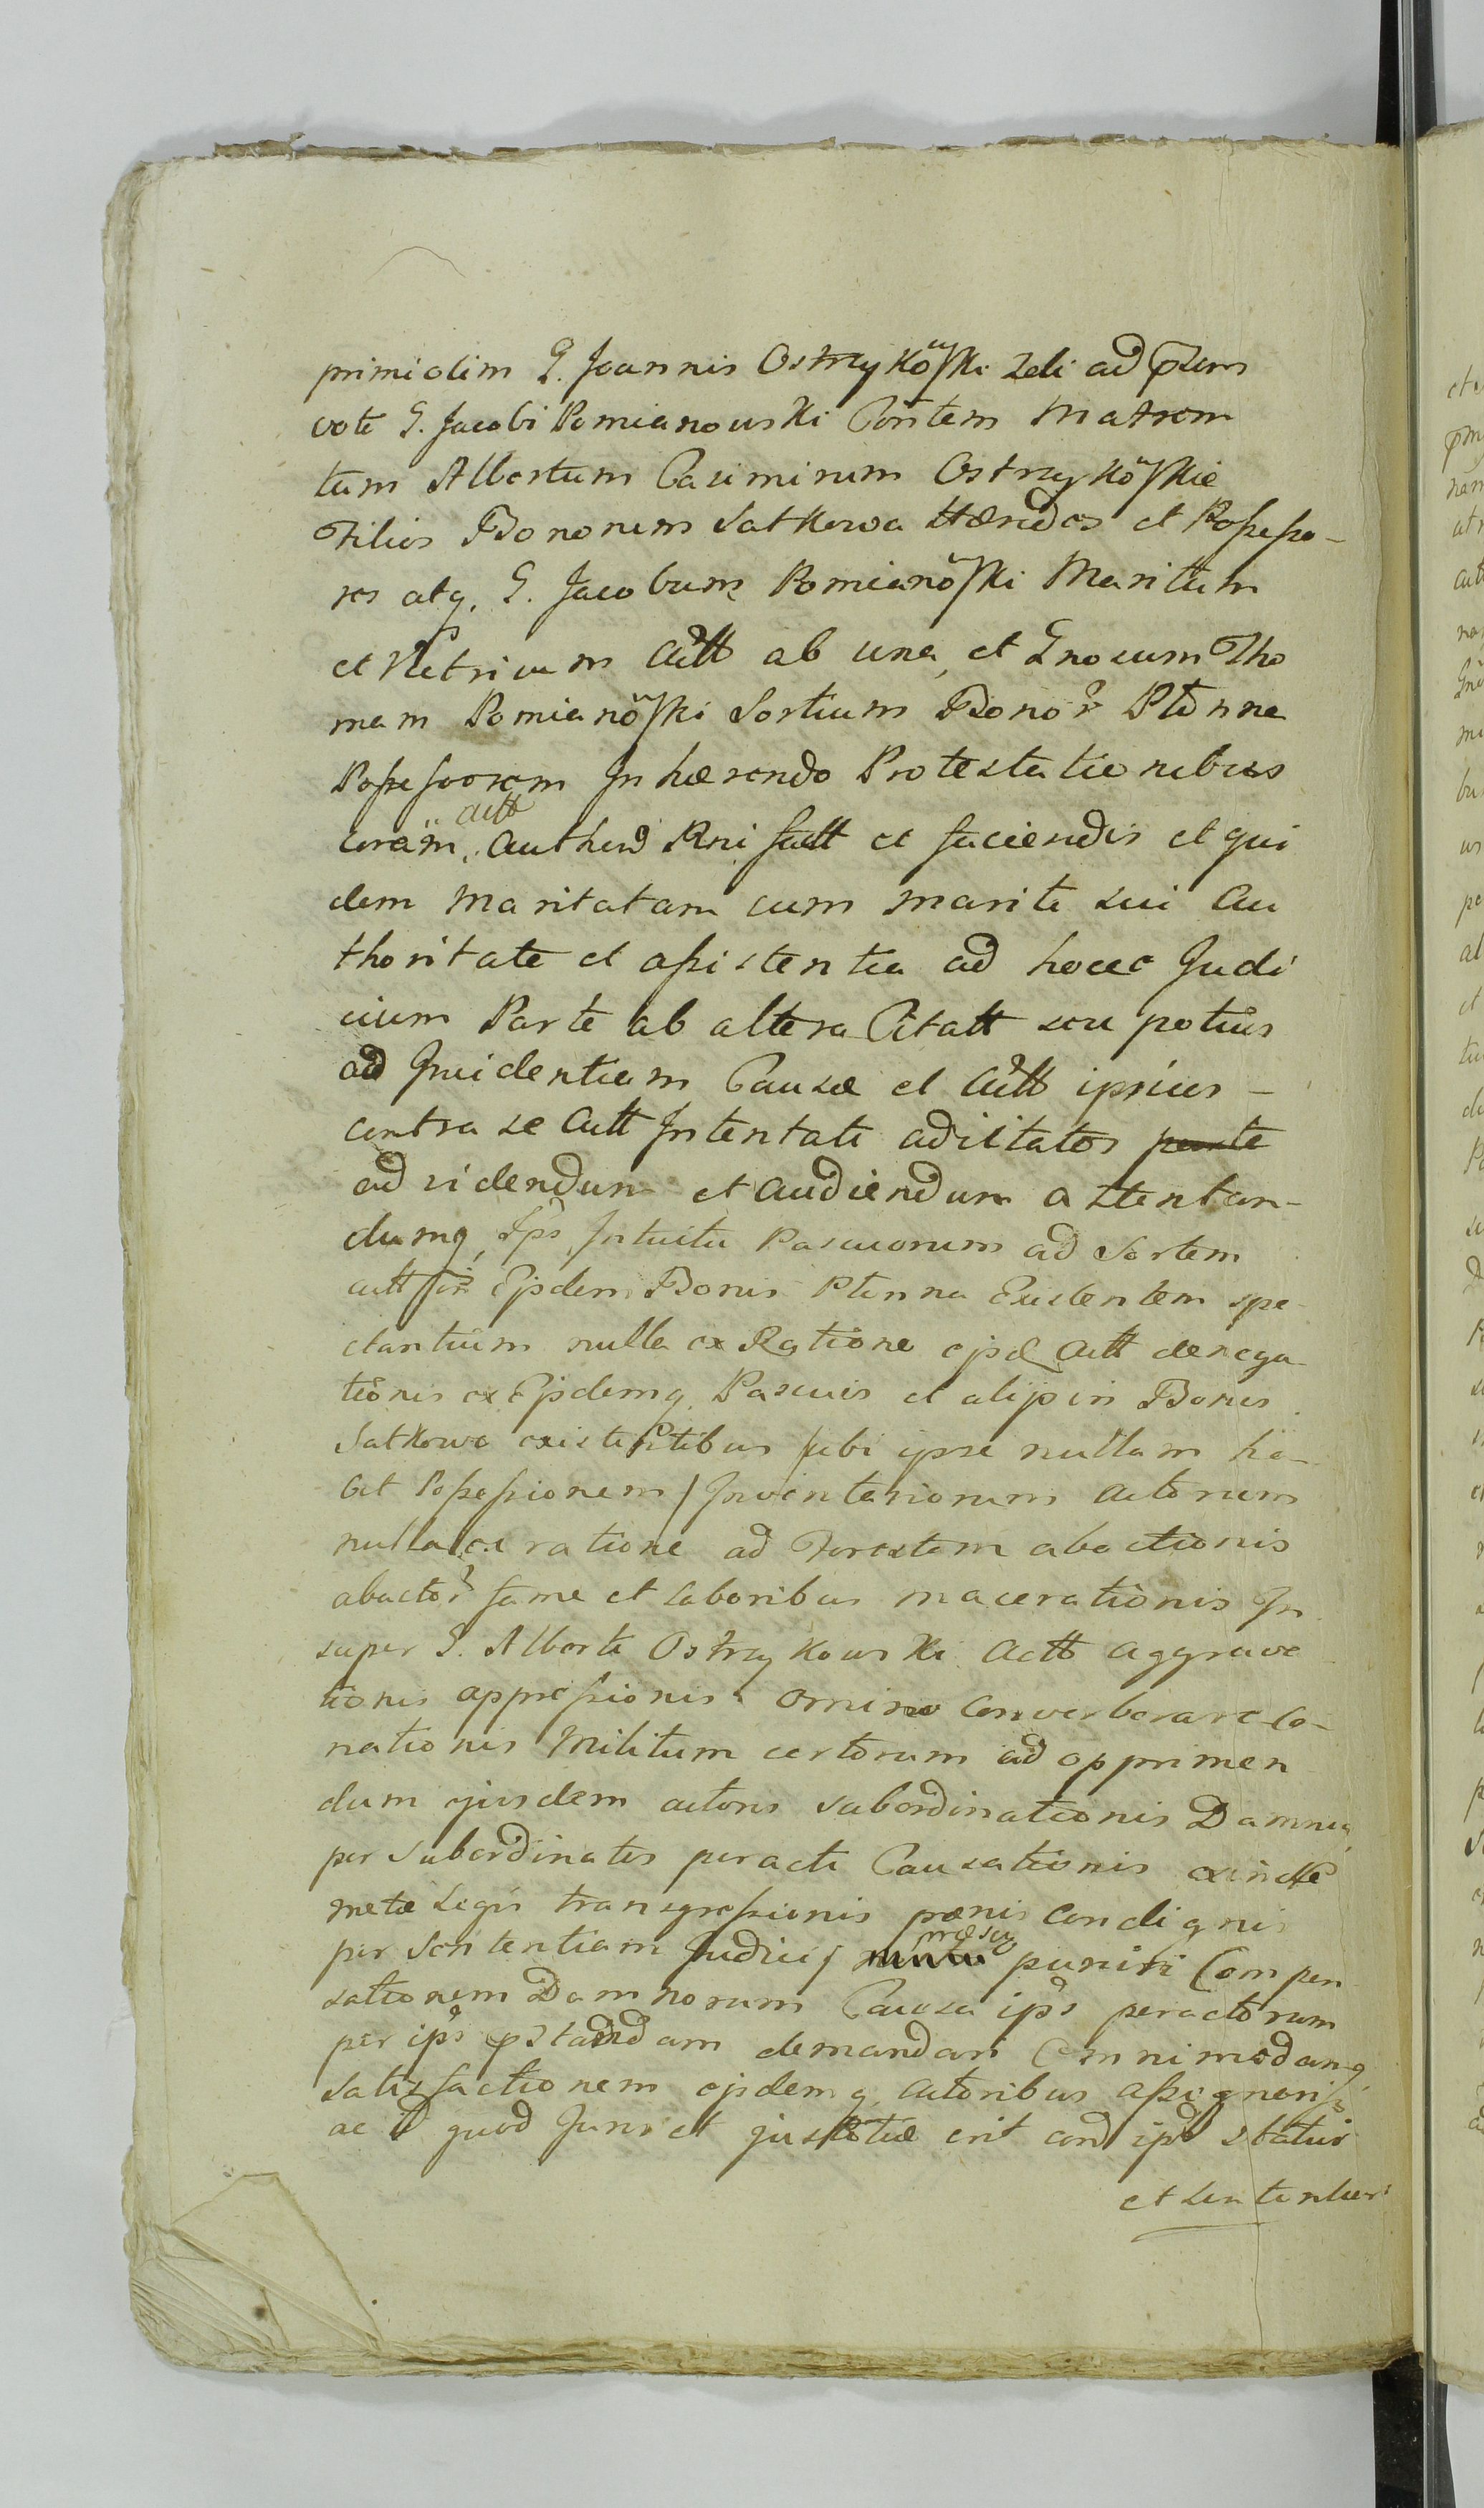 primi olim G. Joannis Ostrzykõski 2di ad p̃sens
voti G. Jacobi Pomianowski Cõntem Matrem
tum Albertum Casimirum Ostrzykõskie
Filios Bonorum Satkowa Hæredes et Possesso-
res atq, G. Jacobum Pomianõski Maritum
et Vitricum Actt ab una, et Gnosum Tho
mam Pomianõski Sortium Bonor Płonna
Possessorem Inhærendo Protestationibus
coram actt Authen Rni factt et faciendis et qui
dem Maritatam cum mariti sui Au
thoritate et assistentia ad hocce Judi
cium Parte ab altera Citatt seu potius
ad Incidentiam Causæ et Actt ipsius -
contra se Actt Intentati adcitatos parte
ad videndum et audiendum attentan-
dumq, Ips Intuitu Pascuorum ad Sortem
actt in Ejsdem Bonis Płonna Existentem spe
ctantium nulla ex Ratione ejsd Actt denega
tionis ex Ejsdemq, Pascuis et alijs in Bonis
Satkowa existentibus /ubi ipse nullam ha-
bet Possessionem/ Inventariorum Actorum
nulla ex ratione ad Forestem abactionis
abactor fame et laboribus macerationis In
super G. Alberti Ostrzykowski Actt aggrava
tionis oppressionis omnino converberare co-
nationis Militum certorum ad opprimen
dum ejusdem actoris subordinationis Damnor
per subordinatos peracti Causationis exinde
metæ Legis transgressionis pœnis condignis
per Sententiam Judicij præsen puniri Compen
sationem Damnorum Causa ips peractorum
per ips p̃standam demandari Omnimodamq,
satisfactionem ejsdemq, Actoribus assignari
ac id quod Juris et justitiæ erit cond ips statui
et sententiari